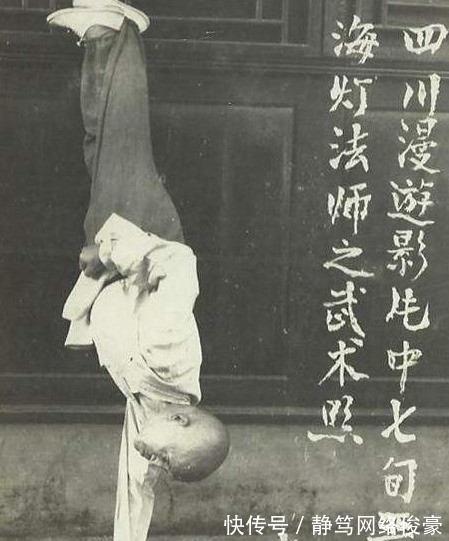 四川漫遊影片中七旬
海灯法师之武术照
快传号／静笃网络俊豪